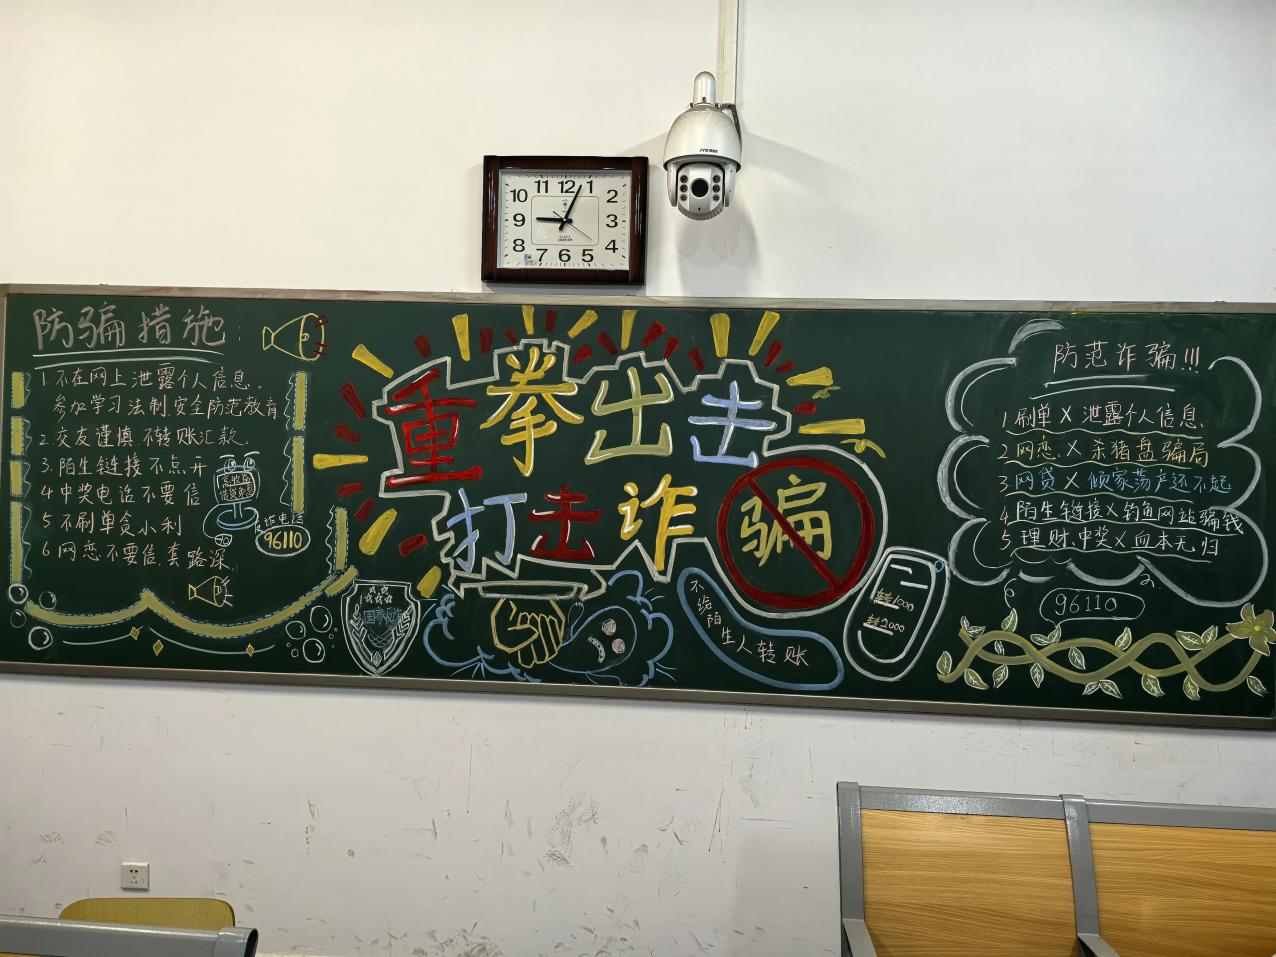 防骗措施:
1.不在网上泄露个人信息.
参加学习法制.安全防范教育
2.交友谨慎 不转账汇款.
3.陌生链接不点开
4 中奖电话不要信
5 不刷单贪小利
6 网恋不要信.套路深.
高收益
反诈电话
96110
国家反诈
重拳出击
打击诈骗
不给陌生人转账
转1000
转2000
防范诈骗!!!
1刷单 X 泄露个人信息
2网恋.X 杀猪盘骗局
3网贷 X 倾家荡产还不起
4.陌生链接X钓鱼网站骗钱
5.理财.中奖X血本无归
96110
11 12 1
10 2
9 3
8 4
7 6 5